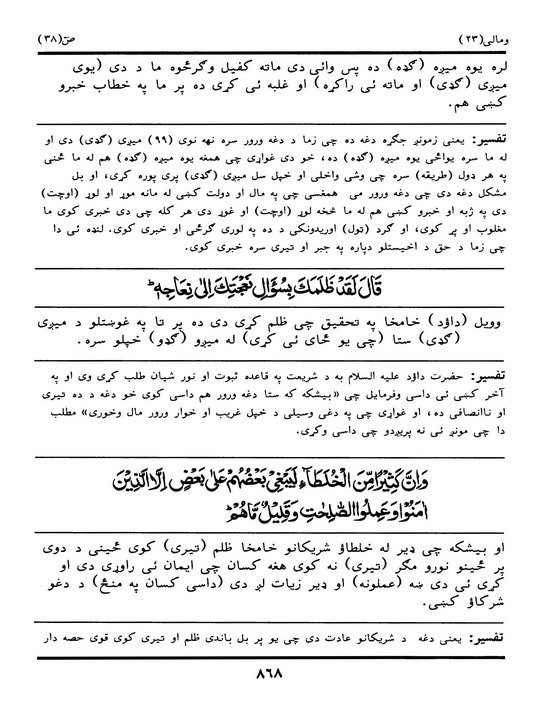 ومالی(۲۳) صٓ(۳۸)
لره یوه میږه (گډه) ده پس وائی دی ماته کفیل وگرځوه ما د دی (یوی
میږی (گډی) او ماته ئی راکړه) او غلبه ئی کړی ده پر ما په خطاب خبرو
کښی هم.
تفسیر: یعنی زمونږ جگړه دغه ده چی زما د دغه ورور سره نهه نوی (۹۹) میږی (گډی) دی او
له ما سره یواځی یوه میږه (گډه) ده، خو دی غواړی چی همغه یوه میږه (گډه) هم له ما ځنی
په هر ډول (طریقه) سره چی وشی واخلی او خپل سل میږی (گډی) پری پوره کړی، او بل
مشکل دغه دی چی دغه ورور می همغسی چی په مال او دولت کښی له مانه موړ او لوړ (اوچت)
دی په ژبه او خبرو کښی هم له ما څخه لوړ (اوچت) او غوړ دی هر کله چی دی خبری کوی ما
مغلوب او پړ کوی، او گرد (ټول) اوریدونکی د ده په لوری گرځی او خبری کوی. لنډه ئی دا
چی زما د حق د اخیستلو دپاره په جبر او تیری سره خبری کوی.
قَالَ لَقَدْ ظَلَمَكَ بِسُؤَالِ نَعْجَتِكَ إِلٰى نِعَاجِهٖ ؕ
وویل (داؤد) خامخا په تحقیق چی ظلم کړی دی ده پر تا په غوښتلو د میږی
(گډی) ستا (چی یو ځای ئی کړی) له میږو (گډو) خپلو سره.
تفسیر: حضرت داؤد علیه السلام به د شریعت په قاعده ثبوت او نور شیان طلب کړی وی او په
آخر کښی ئی داسی وفرمایل چی «بیشکه که ستا دغه ورور هم داسی کوی خو دغه د ده تیری
او ناانصافی ده، او غواړی چی په دغی وسیلی د خپل غریب او خوار ورور مال وخوری» مطلب
دا چی مونږ ئی نه پریږدو چی داسی وکړی.
وَاِنَّ كَثِيْرًا مِّنَ الْخُلَطَآءِ لَيَبْغِيْ بَعْضُهُمْ عَلٰى بَعْضٍ اِلَّا الَّذِيْنَ
اٰمَنُوْا وَعَمِلُوا الصّٰلِحٰتِ وَقَلِيْلٌ مَّا هُمْ ؕ
او بیشکه چی ډیر له خلطاؤ شریکانو خامخا ظلم (تیری) کوی ځینی د دوی
پر ځینو نورو مگر (تیری) نه کوی هغه کسان چی ایمان ئی راوړی دی او
کړی ئی دی ښه (عملونه) او ډیر زیات لږ دی (داسی کسان په منځ) د دغو
شرکاؤ کښی.
تفسیر: یعنی دغه د شریکانو عادت دی چی یو پر بل باندی ظلم او تیری کوی قوی حصه دار
۸۶۸